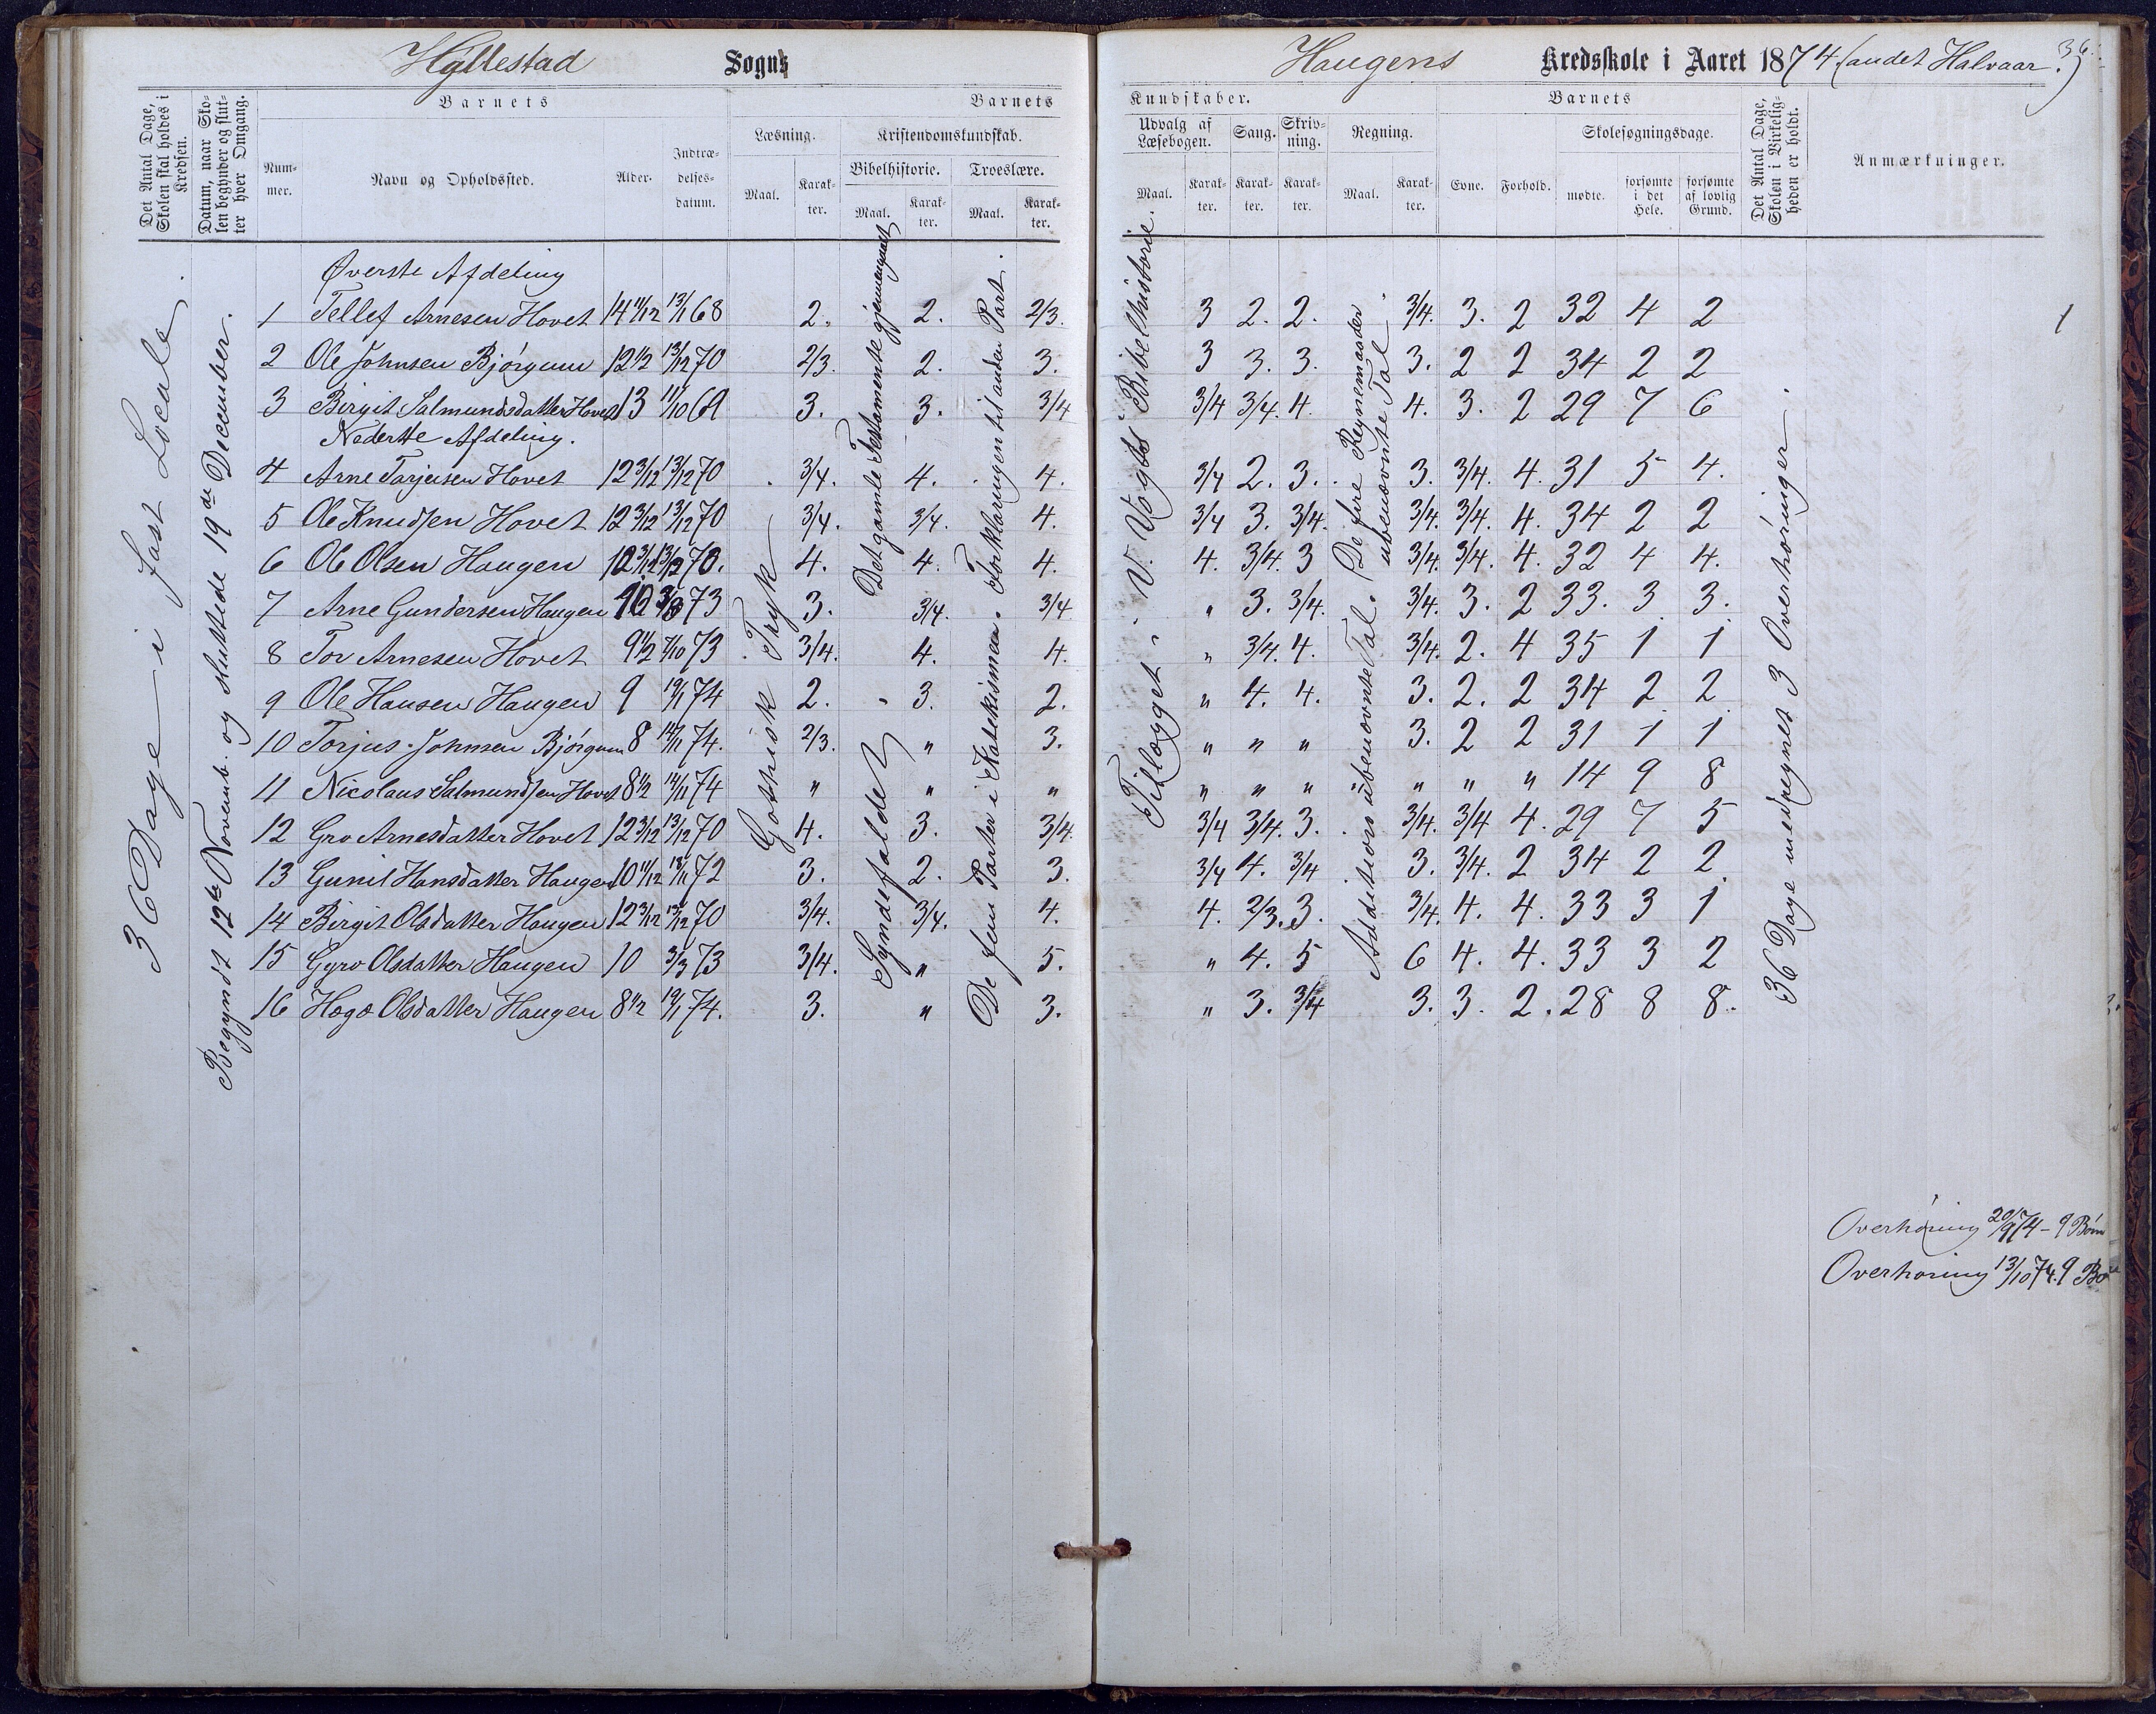 Hyllestad Sogns
Haugens Kredsskole i Aaret 1874 (andet Halvaar.)
36.
Det Antal Dage, Skolen skal holdes i Kredsen.
Datum, naar Skolen begynder og slutter hver Omgang.
Barnets
Nummer.
Navn og Opholdssted.
Alder.
Indtrædelsesdatum.
Barnets
Læsning.
Kristendomskundskab.
Bibelhistorie.
Troeslære.
Maal.
Karakter.
Maal.
Karakter.
Maal.
Karakter.
Kundskaber.
Udvalg af Læsebogen.
Sang.
Skrivning.
Regning.
Maal.
Karakter.
Karakter.
Karakter.
Maal.
Karakter.
Barnets
Evne.
Forhold.
Skolesøgningsdage.
mødte.
forsømte i det Hele.
forsømte af lovlig Grund.
Det Antal Dage, Skolen i Virkeligheden er holdt.
Anmærkninger.
36 Dage i fast Locale.
Begyndt 12te Novemb. og sluttede 19de December.
Gothisk Tryk
Syndefaldet
Det gamle Testamente gjennemgaaet
De fem Parter i Katekismen. Forklaringen til anden Part.
Tillægget i V. Vogts Bibelhistorie.
Addition i ubenævnte Tal. (De fire Regnemaader i ubenævnte Tal
36 Dage medregnet 3 Overhøringer.
Øverste Afdeling
1 Tellef Arnesen Hovet 14 11/12 13/1 68 2. 2. 2/3. 3 2. 2. 3/4. 3. 2 32 4 2
2 Ole Johnsen Bjørgum 12 1/2 13/12 70 2/3. 2. 3. 3 3. 3. 3. 2 2 34 2 2
3 Birgit Salmundsdatter Hovet 13 11/10 69 3. 3. 3/4 3/4 3/4. 4. 4. 3. 2 29 7 6
Nederste Afdeling.
4 Arne Tarjeisen Hovet 12 3/12 13/12 70 3/4. 4. 4. 3/4 2. 3. 3. 3/4. 4. 31 5 4.
5 Ole Knudsen Hovet 12 3/12 13/12 70 3/4. 3/4. 4. 3/4 3. 3/4. 3/4. 3/4. 4. 34 2 2
6 Ole Olsen Haugen 12 3/12 13/12 70. 4. 4. 4. 4. 3/4. 3 3/4. 3/4. 4. 32 4 4.
7 Arne Gundersen Haugen 10 3/3 73 3. 3/4. 3/4 " 3. 3/4. 3/4. 3. 2 33. 3 3.
8 Tor Arnesen Hovet 9 1/2 7/10 73 3/4. 4. 4. " 3/4. 4. 3/4. 2. 4 35 1 1
9 Ole Hansen Haugen 9 19/1 74 2. 3. 2. " 4. 4. 3. 2. 2 34 2 2
10 Torjus Johnsen Bjørgum 8 14/11 74. 2/3. " 3. " " " 3. 2 2 31 1 1
11 Nicolaus Salmundsen Hovet 8 1/2 14/11 74 " " " " " " " " " " 14 9 8
12 Gro Arnesdatter Hovet 12 3/12 13/12 70 4. 3. 3/4. 3/4 3/4. 3. 3/4. 3/4 4. 29 7 5
13 Gunil Hansdatter Haugen 10 11/12 18/11 72 3. 2. 3. 3/4 4. 3/4 3. 3/4. 2 34 2 2
14 Birgit Olsdatter Haugen 12 3/12 13/12 70 3/4. 3/4. 4. 4. 2/3. 3. 3/4. 4. 4. 33 3 1
15 Gyro Olsdatter Haugen 10 3/3 73 3/4. " 5. " 4. 5 6 4. 4. 33 3 2
16 Hæge Olsdatter Haugen 8 1/2 19/1 74. 3. " 3. " 3. 3/4 3. 3. 2. 28 8 8.
1
Overhøring 20/9 74 - 9 Børn
Overhøring 13/10 74. 9 Bø